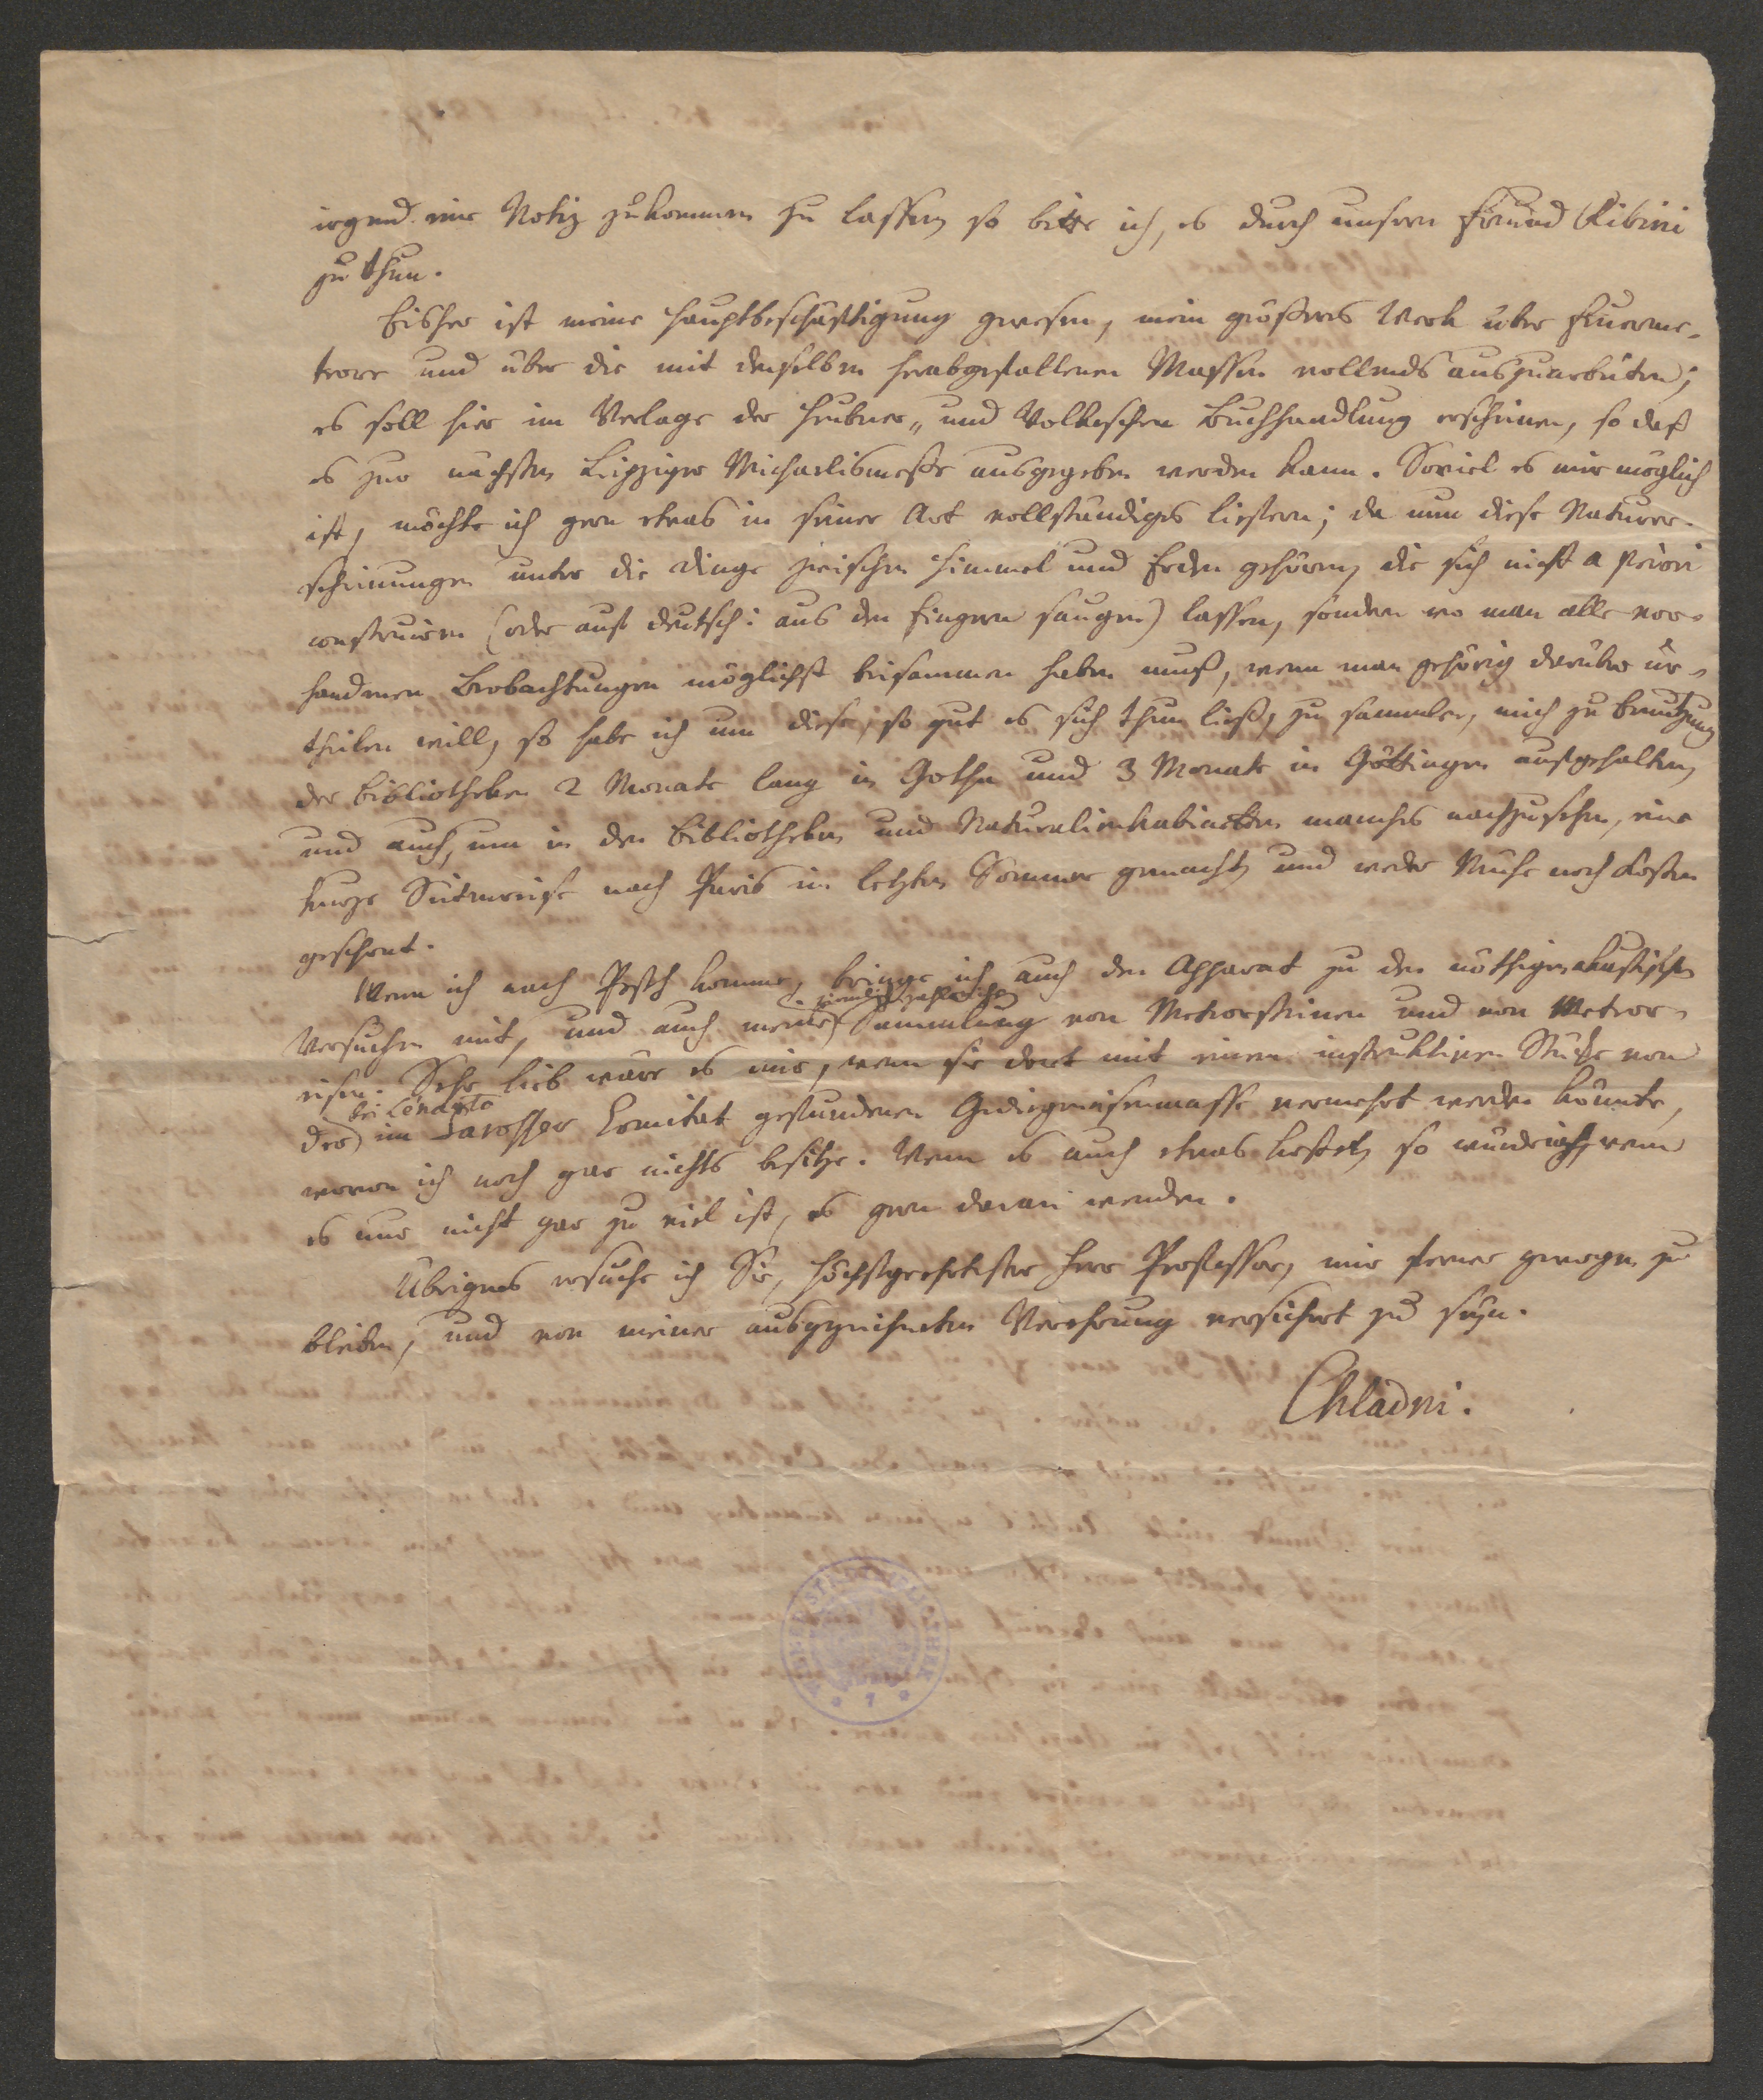 irgend eine Notiz zukommen zu lassen, so bitte ich, es durch unsern Freund Ribini
zu thun.
Bisher ist meine Hauptbeschäftigung gewesen, mein größeres Werk über Feuerme-
teore und über die mit denselben herabgefallenen Massen vollends auszuarbeiten;
es soll hier im Verlage der Heubner- und Volkeschen Buchhandlung erscheinen, so daß
es zur nächsten Leipziger Michaelismesse ausgegeben werden kann. Soviel es mir möglich
ist, möchte ich gern etwas in seiner Art vollständiges liefern; da nun diese Naturer-
scheinungen unter die Dinge zwischen Himmel und Erden gehören, die sich nicht a priori
construiren (oder auf deutsch: aus den Fingern saugen) lassen, sondern wo man alle vor-
handenen Beobachtungen möglichst beisammen haben muß, wenn man gehörig darüber ur-
theilen will, so habe ich um diese, so gut es sich thun ließ, zu sammlen, mich zu Benutzung
der Bibliotheken 2 Monate lang in Gotha und 3 Monate in Göttingen aufgehalten,
und auch, um in den Bibliotheken und Naturalienkabinetten manches nachzusehen, eine
kurze Seitenreise nach Paris im letzten Sommer gemacht, und weder Mühe noch Kosten
geschont.
Wenn ich nach Pesth komme, bringe ich auch den Apparat zu den nöthigen akustischen
ziemlich zahlreiche
Versuchen mit, und auch meine Sammlung von Meteorsteinen und von Meteor-
eisen. Sehr lieb wäre es mir, wenn sie dort mit einem instruktiven Stücke von
bei Lénarto
der im Sarosser Comitat gefundenen Gediegeneisenmasse vermehrt werden könnte,
wovon ich noch gar nichts besitze. Wenn es auch etwas kostet, so würde ich, wenn
es nur nicht gar zu viel ist, es gern daran wenden.
Übrigens ersuche ich Sie, höchstgeehrtester Herr Professor, mir ferner gewogen zu
bleiben, und von meiner ausgezeichneten Verehrung versichert zu seyn.
Chladni.